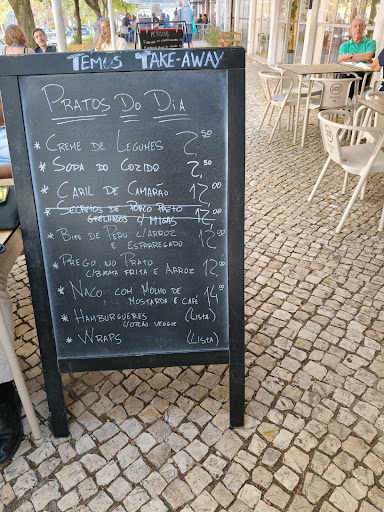 Temos Take-Away
Pratos do Dia
* Creme de Legumes 2,50
* Sopa do Cozido 2,50
* Caril de Camarão 12,00
* Secretos de Porco Preto
Grelhados c/ Migas 12,00
* Bife de Peru c/ Arroz 12,00
e Esparregado
* Prego no Prato
c/ Batata Frita e Arroz 12,00
* Naco com Molho de
Mostarda e Café 14,00
* Hamburgueres (Lista)
c/ Opção Veggie
* Wraps (Lista)